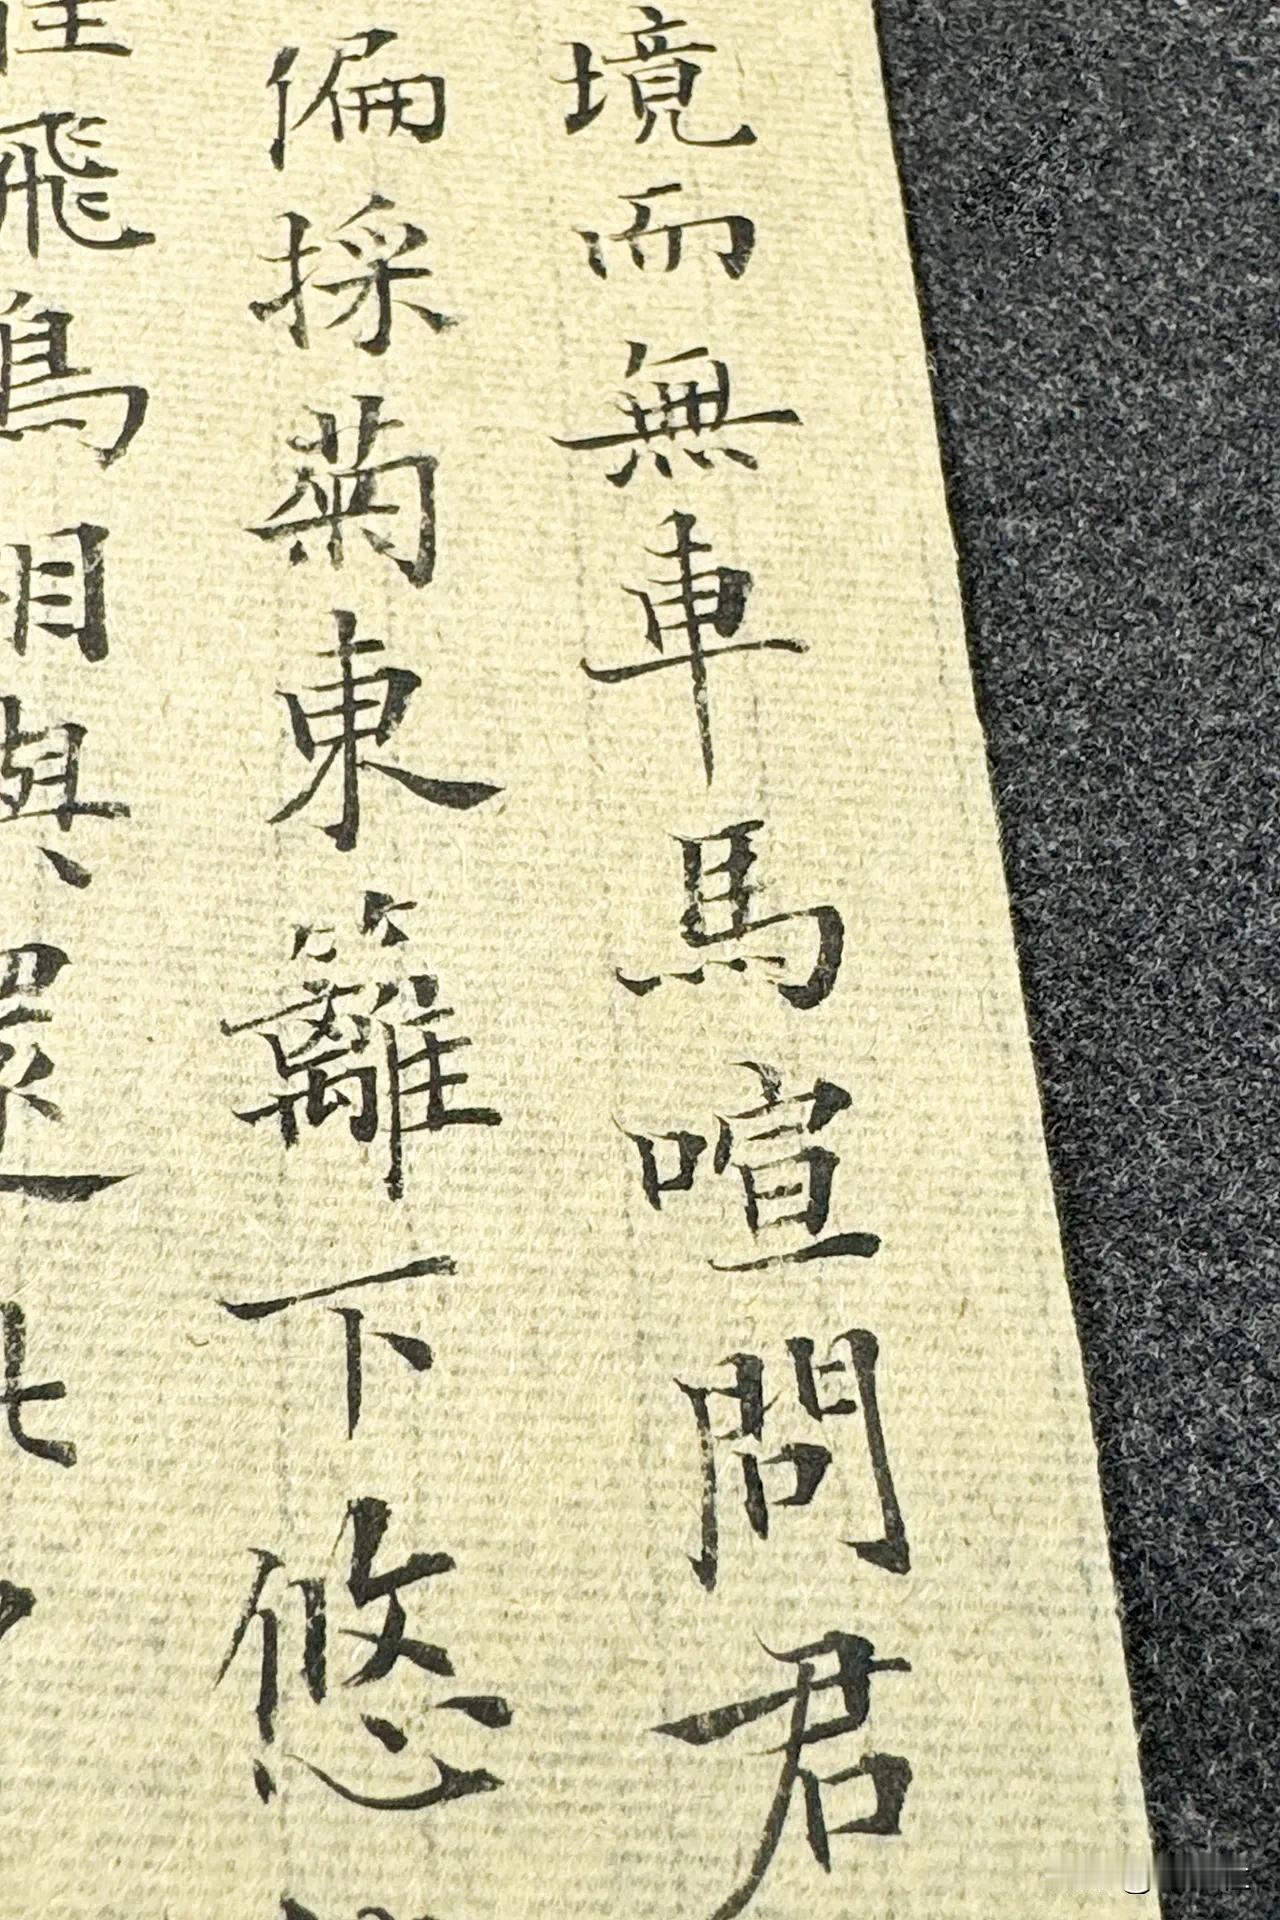 境而無車馬喧問君
偏採菊東籬下悠
佳飛鳥相與還此